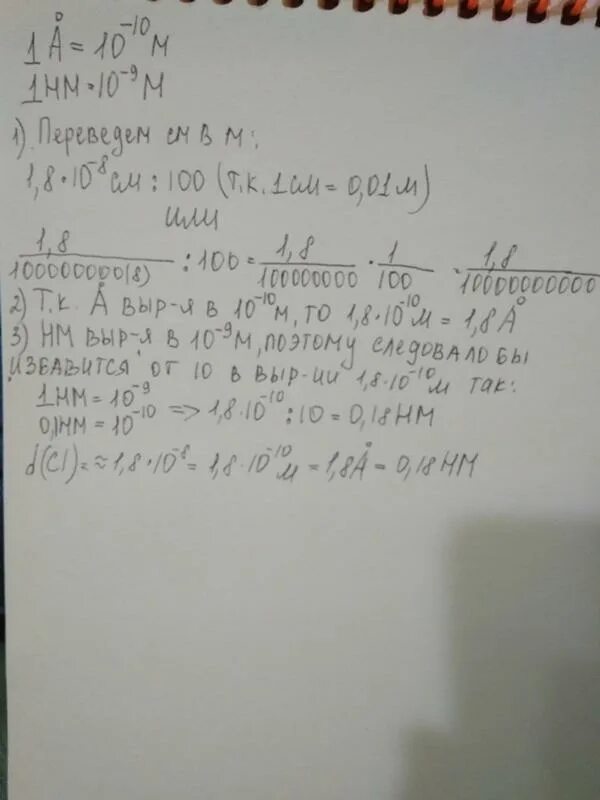 1 Å = 10⁻¹⁰ м
1 нм = 10⁻⁹ м
1) Переведем см в м:
1,8 · 10⁻⁸ см : 100 (т.к. 1 см = 0,01 м)
или
1,8/100000000(8) : 100 = 1,8/100000000 · 1/100 = 1,8/10000000000
2) Т.к. Å выр-я в 10⁻¹⁰ м, то 1,8 · 10⁻¹⁰ м = 1,8 Å
3) нм выр-я в 10⁻⁹ м, поэтому следовало бы
избавится от 10 в выр-ии 1,8 · 10⁻¹⁰ м так:
1 нм = 10⁻⁹
0,1 нм = 10⁻¹⁰ => 1,8 · 10⁻¹⁰ : 10 = 0,18 нм
d(Cl) = ≈ 1,8 · 10⁻⁸ = 1,8 · 10⁻¹⁰ м = 1,8 Å = 0,18 нм